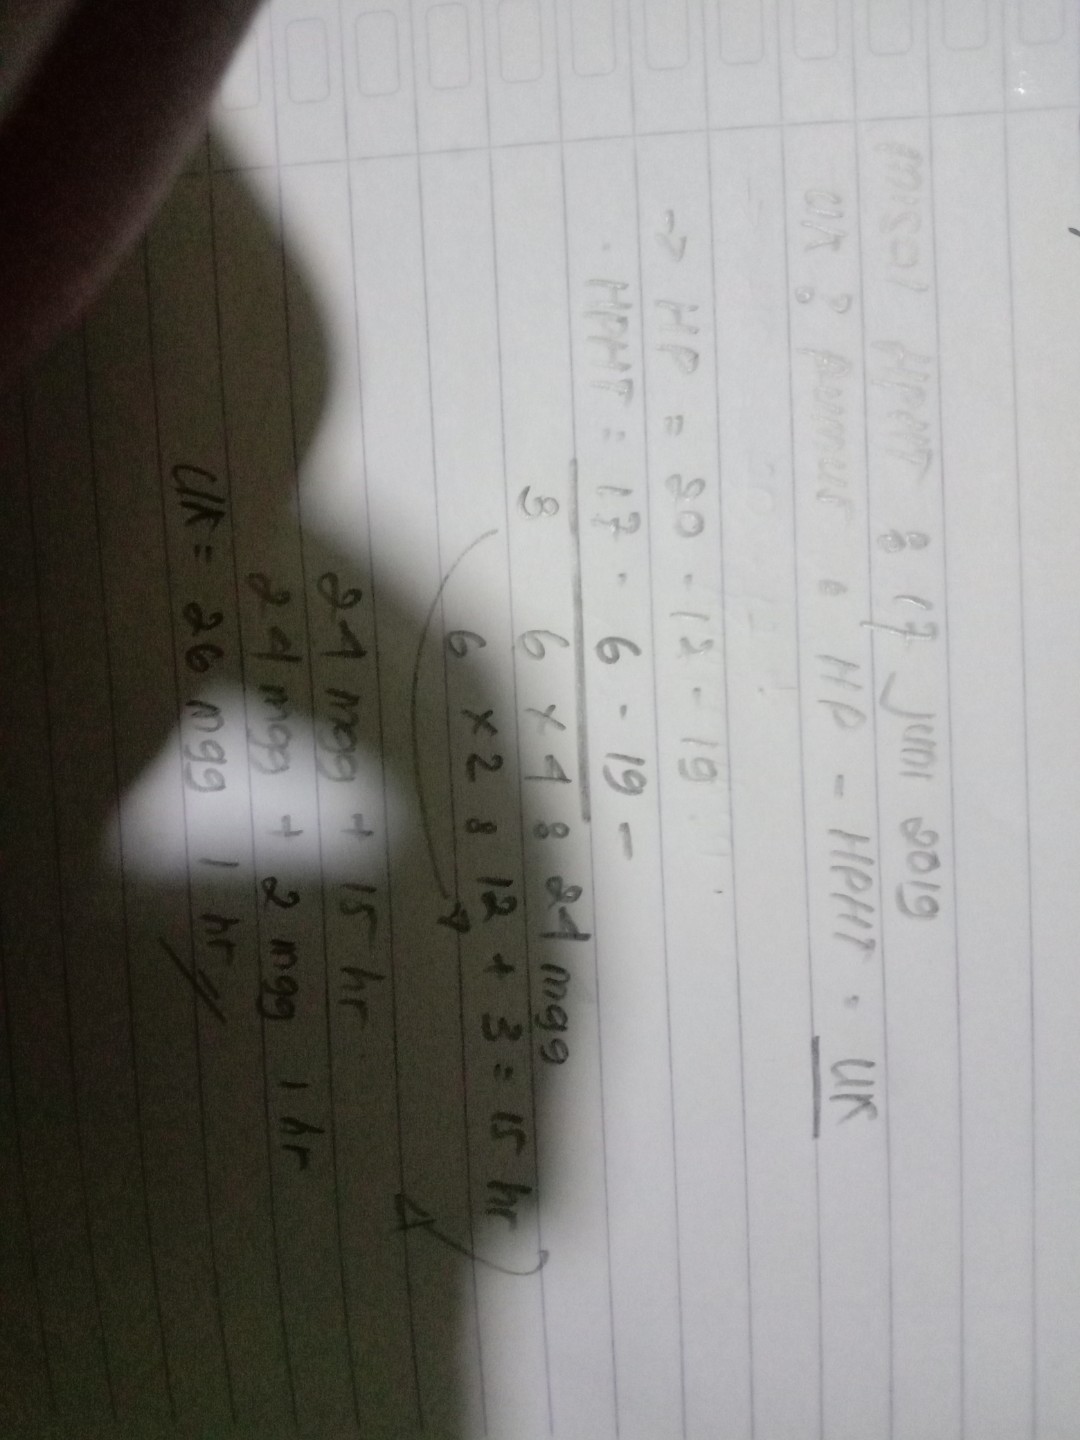 misal HPHT : 17 Juni 2019
UK : Rumus : HP - HPHT = UK
→ HP = 20 - 12 - 19
HPHT = 17 - 6 - 19 -
3 6 x 4 : 24 mgg
6 x 2 : 12 + 3 = 15 hr
24 mgg + 15 hr
24 mgg + 2 mgg 1 hr
UK = 26 mgg 1 hr //